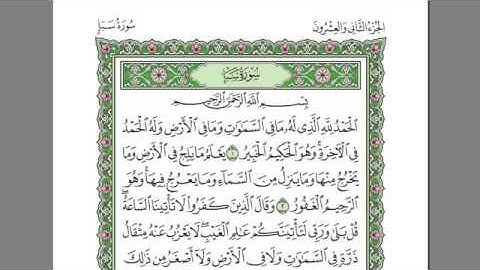 الجزء الثاني والعشرون
سورة سبإ
سورة سبإ
بِسْمِ اللَّهِ الرَّحْمَٰنِ الرَّحِيمِ
الْحَمْدُ لِلَّهِ الَّذِي لَهُ مَا فِي السَّمَاوَاتِ وَمَا فِي الْأَرْضِ وَلَهُ الْحَمْدُ
فِي الْآخِرَةِ وَهُوَ الْحَكِيمُ الْخَبِيرُ ١ يَعْلَمُ مَا يَلِجُ فِي الْأَرْضِ وَمَا
يَخْرُجُ مِنْهَا وَمَا يَنزِلُ مِنَ السَّمَاءِ وَمَا يَعْرُجُ فِيهَا وَهُوَ
الرَّحِيمُ الْغَفُورُ ٢ وَقَالَ الَّذِينَ كَفَرُوا لَا تَأْتِينَا السَّاعَةُ
قُلْ بَلَىٰ وَرَبِّي لَتَأْتِيَنَّكُمْ عَالِمِ الْغَيْبِ لَا يَعْزُبُ عَنْهُ مِثْقَالُ
ذَرَّةٍ فِي السَّمَاوَاتِ وَلَا فِي الْأَرْضِ وَلَا أَصْغَرُ مِن ذَٰلِكَ